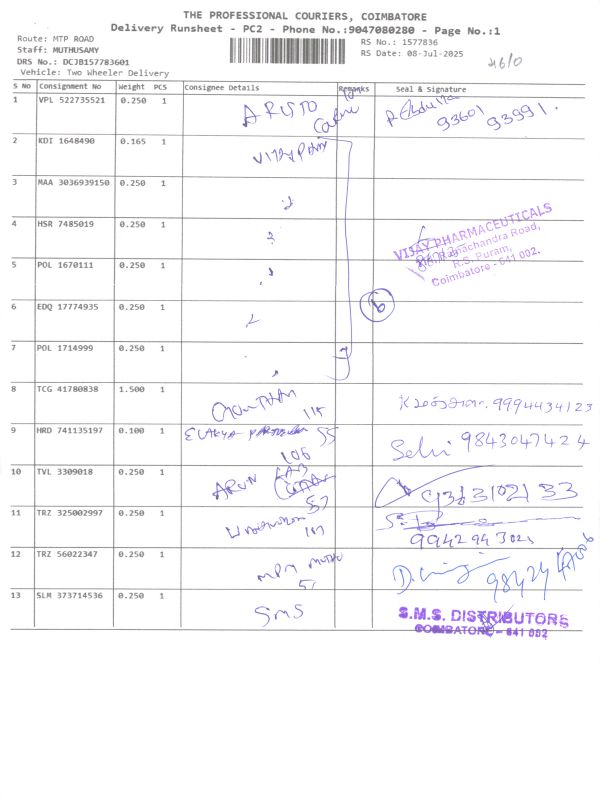 THE PROFESSIONAL COURIERS, COIMBATORE
Delivery Runsheet - PC2 - Phone No.:9047080280 - Page No.:1
Route: MTP ROAD
RS No.: 1577836
Staff: MUTHUSAMY
RS Date: 08-Jul-2025
DRS No.: DCJB157783601
Vehicle: Two Wheeler Delivery
S No Consignment No Weight PCS Consignee Details Remarks Seal & Signature
1 VPL 522735521 0.250 1 ARISTO
93601 93991
2 KDI 1648490 0.165 1 VIJAY
3 MAA 3036939150 0.250 1
4 HSR 7485019 0.250 1
VIJAY PHARMACEUTICALS
Ramachandra Road,
R.S. Puram,
Coimbatore - 641 002.
5 POL 1670111 0.250 1
6 EDQ 17774935 0.250 1
6
7 POL 1714999 0.250 1
8 TCG 41780838 1.500 1 9994434123
9 HRD 741135197 0.100 1 55
106
Selvi 9843047424
10 TVL 3309018 0.250 1 ARUN LAB
57
11 TRZ 325002997 0.250 1
9942943021
12 TRZ 56022347 0.250 1 MPM
13 SLM 373714536 0.250 1 SMS
S.M.S. DISTRIBUTORS
COIMBATORE - 641 002